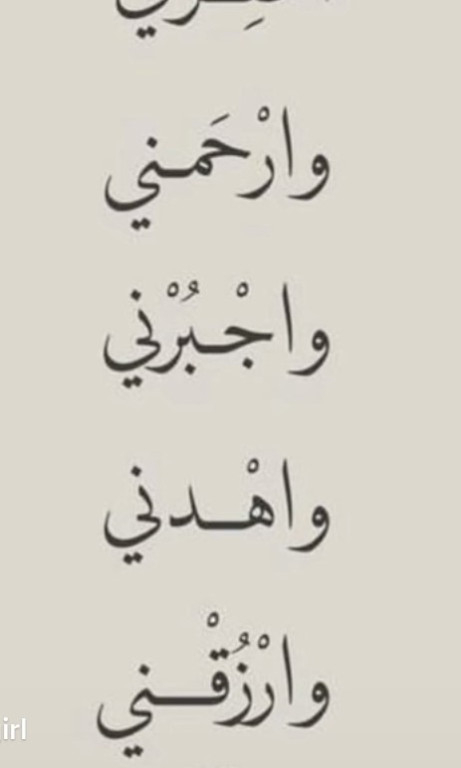 وارْحَمني
واجْبُرْني
واهْدني
وارْزُقْني
irl